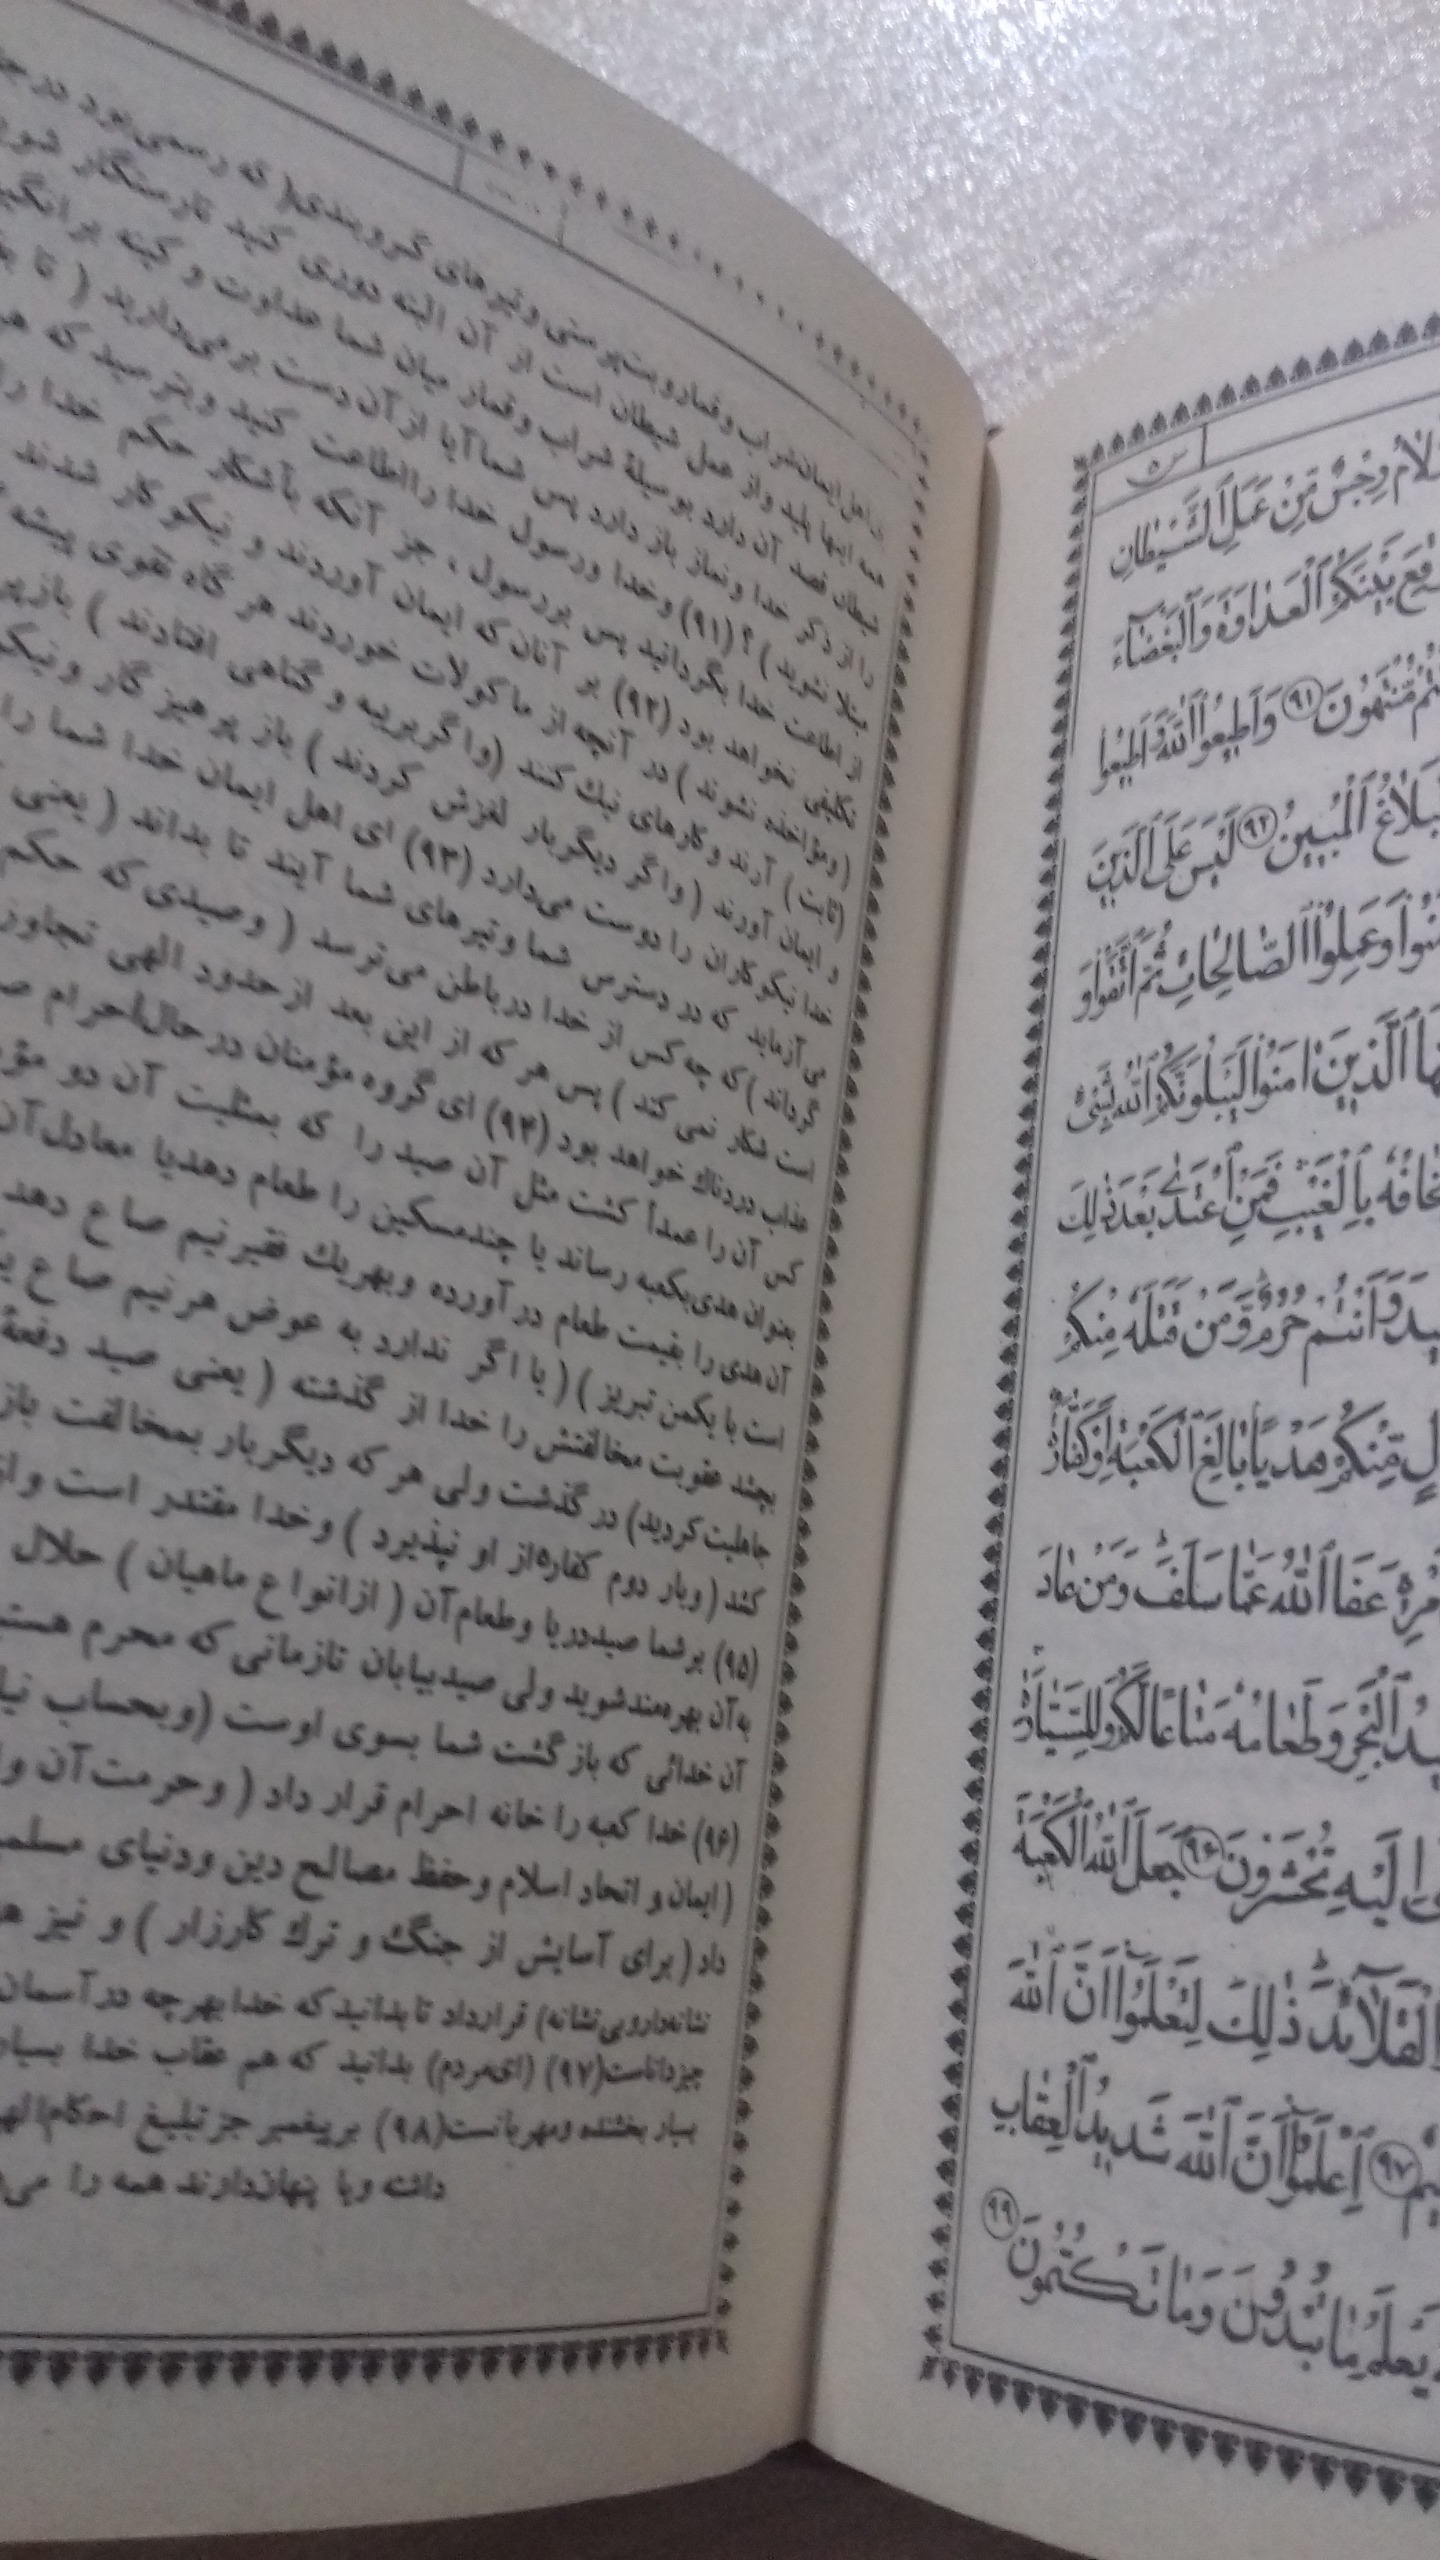 س۵
رِجْسٌ مِنْ عَمَلِ الشَّيْطَانِ
بَيْنَكُمُ الْعَدَاوَةَ وَالْبَغْضَاءَ
مُنْتَهُونَ ﴿۹۱﴾ وَأَطِيعُوا اللَّهَ وَأَطِيعُوا
الْمُبِينُ ﴿۹۲﴾ لَيْسَ عَلَى الَّذِينَ
وَعَمِلُوا الصَّالِحَاتِ ثُمَّ اتَّقَوْا وَ
الَّذِينَ امَنُوا لَيَبْلُوَنَّكُمُ اللَّهُ بِشَيْءٍ
بِالْغَيْبِ فَمَنِ اعْتَدَى بَعْدَ ذَلِكَ
وَأَنْتُمْ حُرُمٌ وَمَنْ قَتَلَهُ مِنْكُمْ
مِنْكُمْ هَدْيًا بَالِغَ الْكَعْبَةِ أَوْ كَفَّارَةٌ
عَفَا اللَّهُ عَمَّا سَلَفَ وَمَنْ عَادَ
الْبَحْرِ وَطَعَامُهُ مَتَاعًا لَكُمْ وَلِلسَّيَّارَةِ
إِلَيْهِ تُحْشَرُونَ ﴿۹۶﴾ جَعَلَ اللَّهُ الْكَعْبَةَ
ذَلِكَ لِتَعْلَمُوا أَنَّ اللَّهَ
﴿۹۷﴾ اِعْلَمُوا أَنَّ اللَّهَ شَدِيدُ الْعِقَابِ
يَعْلَمُ مَا تُبْدُونَ وَمَا تَكْتُمُونَ ﴿۹۹﴾
اهل ایمان شراب و قمار و بت‌پرستی و تیرهای گروبندی( که رسمی بود در
همه اینها پلید و از عمل شیطان است از آن البته دوری کنید تا رستگار
شیطان قصد آن دارد بوسیلۀ شراب و قمار میان شما عداوت و کینه برانگیزد
را از ذکر خدا و نماز باز دارد پس شما آیا از آن دست برمی‌دارید ( تا
مبتلا نشوید )؟ (۹۱) و خدا و رسول خدا را اطاعت کنید و بترسید که
از اطاعت خدا بگردانید پس بر رسول ، جز آنکه بآشکار حکم خدا را
تکلیفی نخواهد بود (۹۲) بر آنان که ایمان آوردند و نیکو کار شدند
(و مؤاخذه نشوند ) در آنچه از مأکولات خوردند هر گاه تقوی پیشه
(ثابت) آرند و کارهای نیك کنند (و اگر بریبه و گناهی افتادند )
و ایمان آورند ( و اگر دیگر بار لغزش کردند ) باز پرهیز گار و
خدا نیکو کاران را دوست می‌دارد (۹۳) ای اهل ایمان خدا شما را
می‌آزماید که در دسترس شما و تیرهای شما آیند تا بداند ( یعنی
گرداند ) که چه کس از خدا در باطن می‌ترسد ( و صیدی که حکم
است شکار نمی کند ) پس هر که از این بعد از حدود الهی تجاوز
عذاب دردناك خواهد بود (۹۴) ای گروه مؤمنان در حال احرام
کس آن را عمداً کشت مثل آن صید را که بمثلیت آن دو
بعنوان هدی بکعبه رساند یا چند مسکین را طعام دهد یا معادل آن
آن هدی را بقیمت طعام در آورده و بهر یك فقیر نیم صاع دهد
است با یکمن تبریز ) ( یا اگر ندارد به عوض هر نیم صاع
بچند عقوبت مخالفتش را خدا از گذشته ( یعنی صید دفعۀ
جاهلیت کردید) در گذشت ولی هر که دیگر بار بمخالفت باز
کند ( و بار دوم کفاره از او نپذیرد ) و خدا مقتدر است و
(۹۵) بر شما صید دریا و طعام آن ( از انواع ماهیان ) حلال
به آن بهره‌مند شوید ولی صید بیابان تا زمانی که محرم
آن خدائی که باز گشت شما بسوی اوست (و بحساب
(۹۶) خدا کعبه را خانه احرام قرار داد ( و حرمت آن
( ایمان و اتحاد اسلام و حفظ مصالح دین و دنیای
داد ( برای آسایش از جنگ و ترك کارزار ) و نیز
نشانه‌دار و بی‌نشانه) قرار داد تا بدانید که خدا بهر چه در آسمان
چیز داناست(۹۷) (ای مردم) بدانید که هم عقاب خدا
بسیار بخشنده و مهربانست(۹۸) بر پیغمبر جز تبلیغ احکام
داشته و یا پنهان دارند همه را